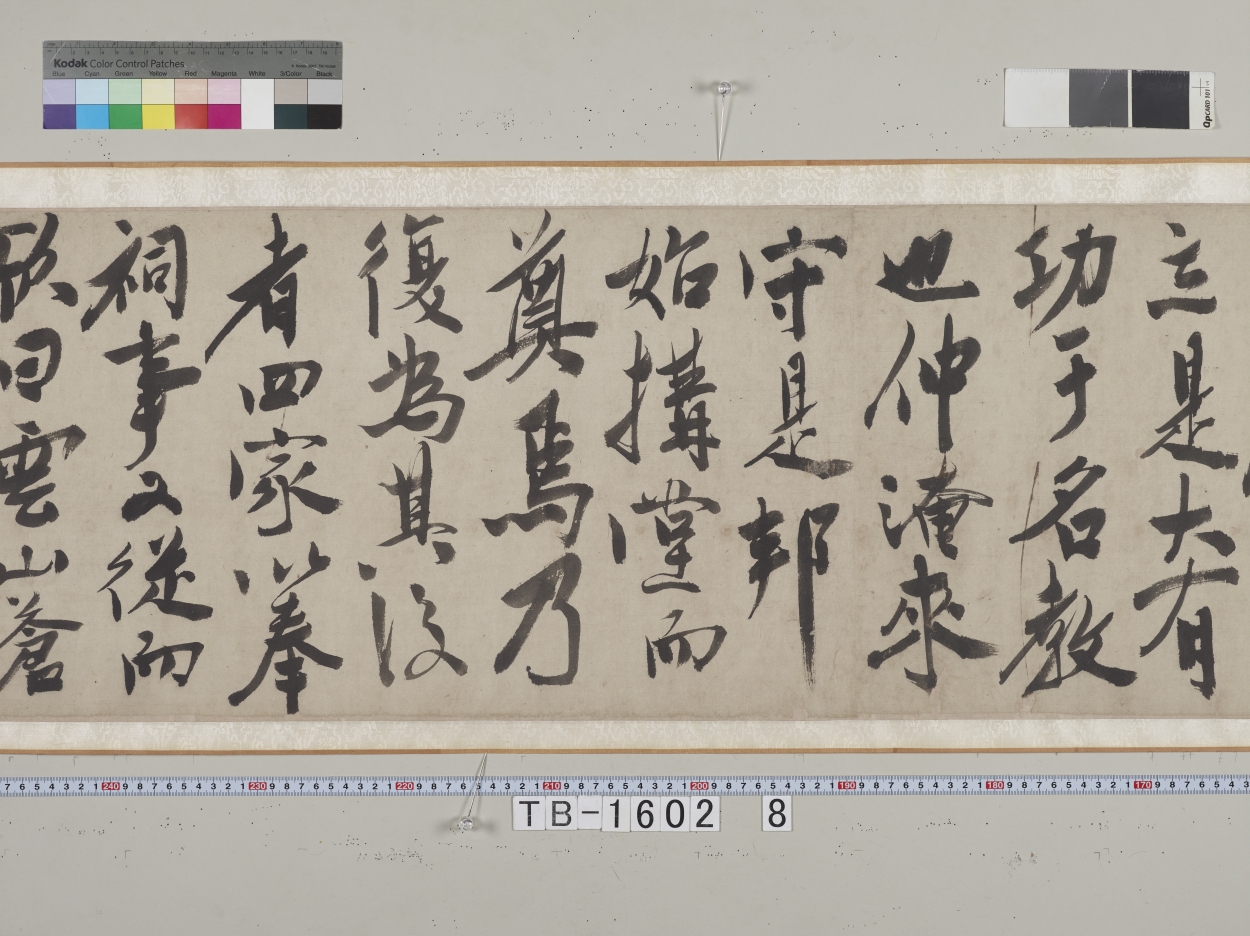 Kodak Color Control Patches
Blue Cyan Green Yellow Red Magenta White 3/Color Black
QPCARD 101
立是大有
功于名教
也仲淹來
守是邦
始搆堂而
奠焉乃
復為其後
者四家以奉
祠事又從而
曰雲山蒼
240 230 220 210 200 190 180 170
TB-1602 8